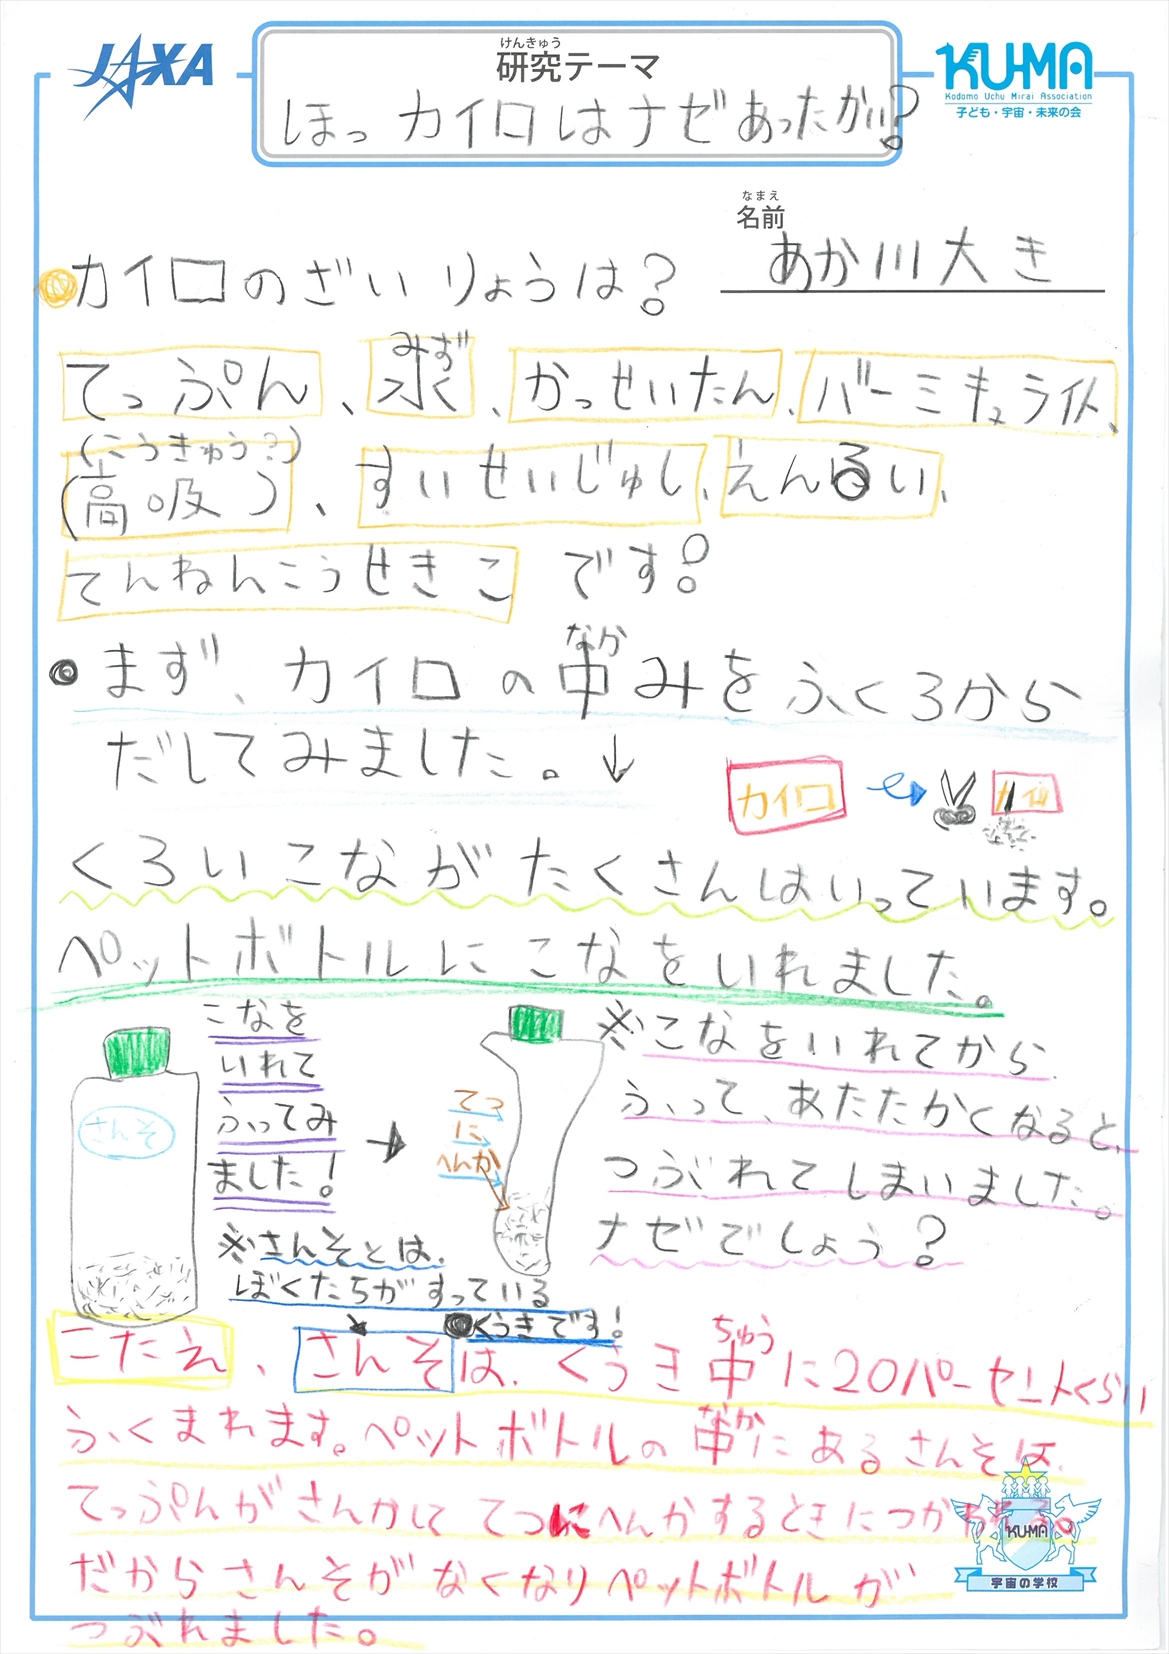 JAXA
けんきゅう
研究テーマ
KU-MA
Kodomo Uchu Mirai Association
子ども・宇宙・未来の会
ほっカイロはナゼあったかい?
なまえ
名前
あか川大き
カイロのざいりょうは?
みず
てっぷん、水、かっせいたん、バーミキュライト、
(こうきゅう?)
(高吸)、すいせいじゅし、えんるい、
てんねんこうせきこです!
なか
まず、カイロの中みをふくろから
だしてみました。↓
カイロ
カイロ
くろいこながたくさんはいっています。
ペットボトルにこなをいれました。
さんそ
こなを
いれて
ふってみ
ました!
てつ
に
へんか
※こなをいれてから
ふって、あたたかくなると、
つぶれてしまいました。
ナゼでしょう?
※さんそとは、
ぼくたちがすっている
くうきです!
ちゅう
こたえ、さんそは、くうき中に20パーセントくらい
なか
ふくまれます。ペットボトルの中にあるさんそは、
てっぷんがさんかしててつにへんかするときにつかわれる。
だからさんそがなくなりペットボトルが
つぶれました。
KU-MA
宇宙の学校